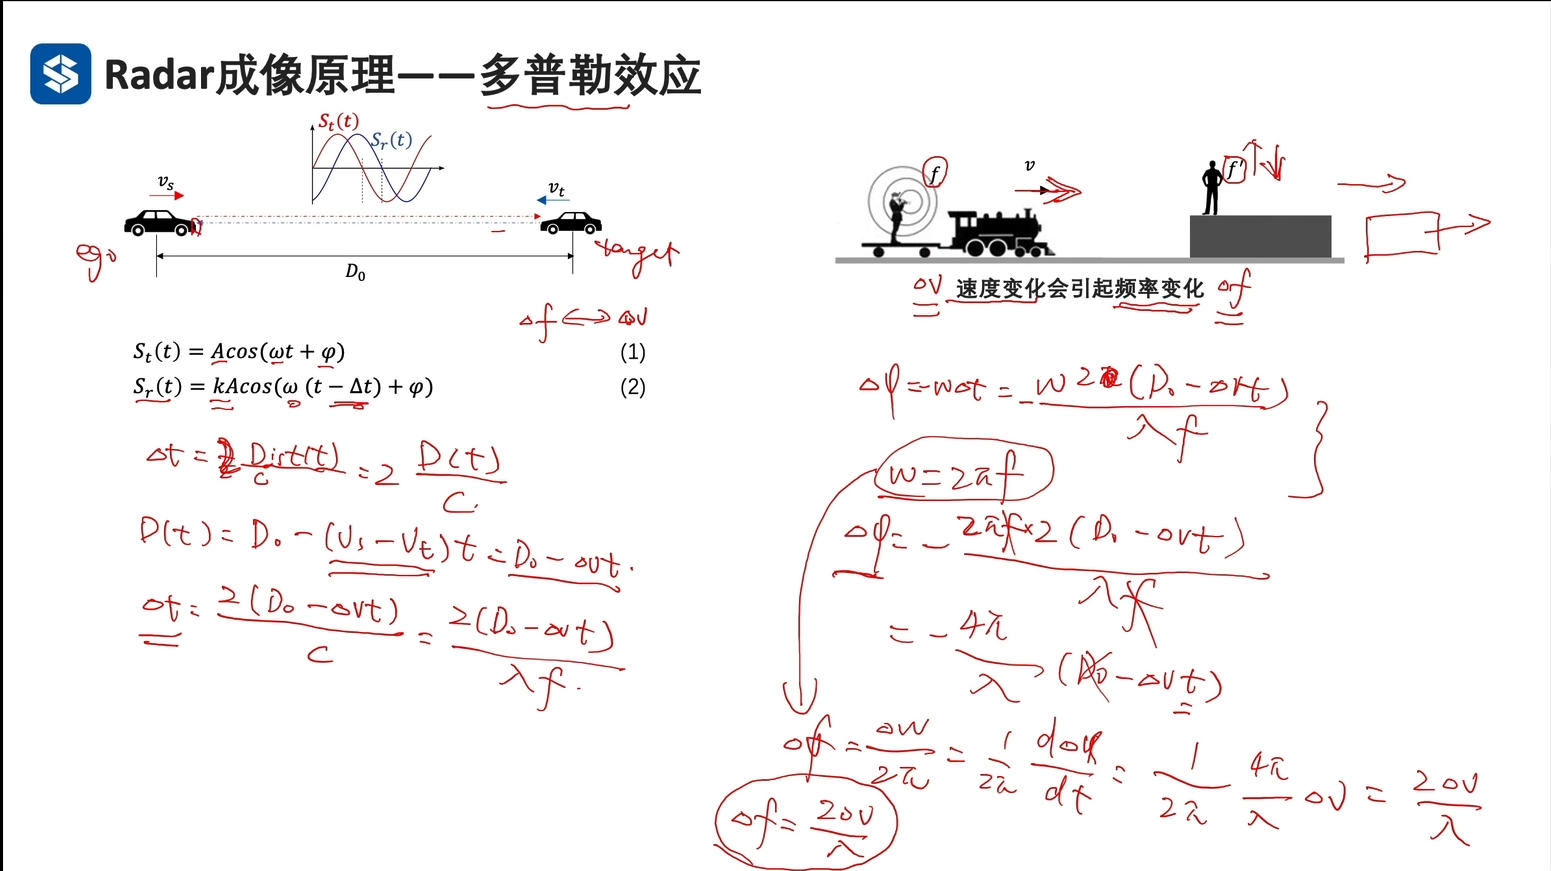 Radar成像原理——多普勒效应
S_t(t)
S_r(t)
v_s
v_t
ego
target
D_0
Δf ⟷ ΔV
S_t(t) = Acos(ωt + φ) (1)
S_r(t) = kAcos(ω (t − Δt) + φ) (2)
Δt = 2 Dist(t) / C = 2 D(t) / C
D(t) = D_0 − (V_s − V_t)t = D_0 − ΔVt.
Δt = 2(D_0 − ΔVt) / C = 2(D_0 − ΔVt) / λf.
f
v
f'
ΔV 速度变化会引起频率变化 Δf
Δφ = −wΔt = − w2(D_0 − ΔVt) / λf
w = 2πf
Δφ = − 2πf×2(D_0 − ΔVt) / λf
= − 4π / λ (D_0 − ΔVt)
Δf = Δw / 2π = 1 / 2π dΔφ / dt = 1 / 2π 4π / λ ΔV = 2ΔV / λ
Δf = 2ΔV / λ